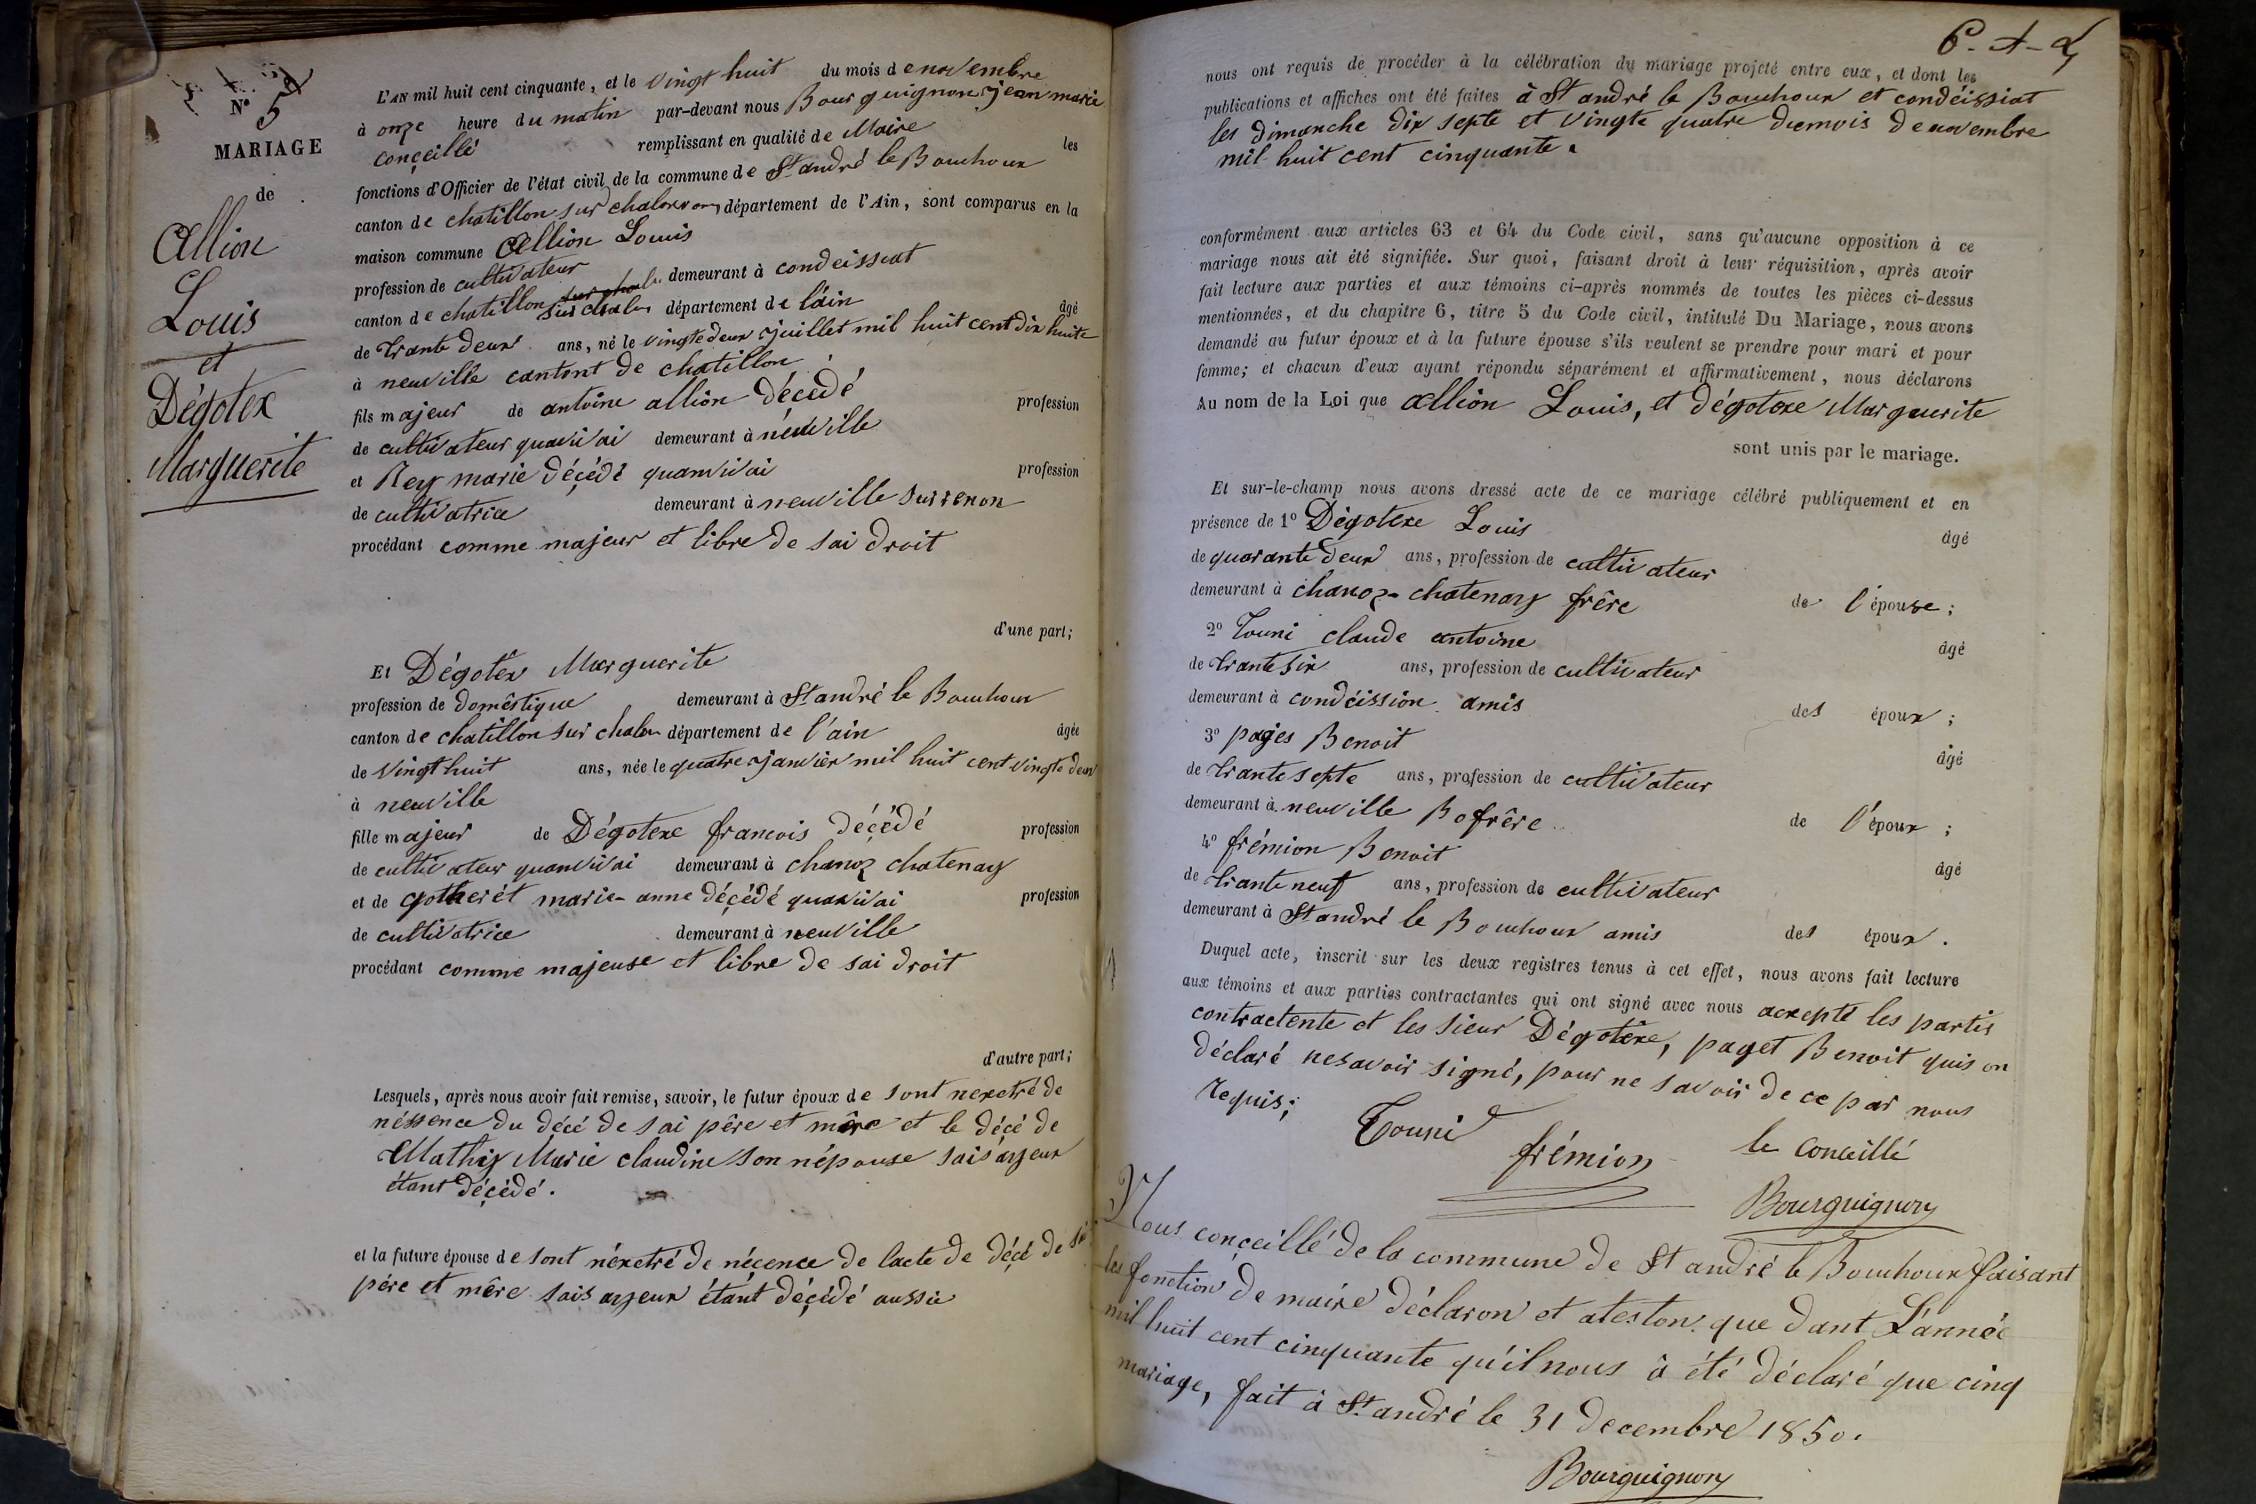 Nº 5
MARIAGE
de
Allion
Louis
et
Dégotex
Marguerite
L'AN mil huit cent cinquante, et le vingt huit du mois de novembre
à onze heure du matin par-devant nous Bourguignon jean marie
conçeillé remplissant en qualité de Maire les
fonctions d'Officier de l'état civil de la commune de St andré le Bouchoux
canton de chatillon sur chalaronne, département de l'Ain, sont comparus en la
maison commune Allion Louis
profession de cultivateur demeurant à condeissiat
canton de chatillon sur chala département de l'ain âgé
de trante deux ans, né le vingte deux juillet mil huit cent dix huite
à neuville cantont de chatillon
fils majeur de antoine allion décédé profession
de cultivateur quanvivai demeurant à neuville
et Rey marie déçédé quanvivai profession
de cultivatrice demeurant à neuville sur renon
procédant comme majeur et libre de sai droit
d'une part;
Et Dégotêx Marguerite
profession de domêstique demeurant à St andré le Bouchoux
canton de chatillon sur chalar département de l'ain âgée
de vingt huit ans, née le quatre janvier mil huit cent vingte deux
à neuville
fille majeur de Dégotexe francois déçédé profession
de cultivateur quanvivai demeurant à chanoz chatenay
et de gotherét marie-anne déçédé quanvivai profession
de cultivatrice demeurant à neuville
procédant comme majeuse et libre de sai droit
d'autre part;
Lesquels, après nous avoir fait remise, savoir, le futur époux de sont nexetré de
néssence du décé de sai père et mêre et le décé de
Mathiy Marie claudine son népouse sais ayeux
étant déçédé.
et la future épouse de sont néxetré de nécence de lacte de décé de sai
pére et mêre sais ayeux étant déçédé aussie
6-A-L
nous ont requis de procéder à la célébration du mariage projeté entre eux, et dont les
publications et affiches ont été faites à St andré le Bouchoux et condéissiat
les dimanche dix septe et vingte quatre dumois de novembre
mil huit cent cinquante.
conformément aux articles 63 et 64 du Code civil, sans qu'aucune opposition à ce
mariage nous ait été signifiée. Sur quoi, faisant droit à leur réquisition, après avoir
fait lecture aux parties et aux témoins ci-après nommés de toutes les pièces ci-dessus
mentionnées, et du chapitre 6, titre 5 du Code civil, intitulé Du Mariage, nous avons
demandé au futur époux et à la future épouse s'ils veulent se prendre pour mari et pour
femme; et chacun d'eux ayant répondu séparément et affirmativement, nous déclarons
Au nom de la Loi que allion Louis, et dégotexe Marguerite
sont unis par le mariage.
Et sur-le-champ nous avons dressé acte de ce mariage célébré publiquement et en
présence de 1º Dégotexe Louis âgé
de quarante deux ans, profession de cultivateur
demeurant à chanoz-chatenay frêre de l'épouse;
2º Touni claude antoine âgé
de trante six ans, profession de cultivateur
demeurant à condéission amis des époux;
3º pages Benoit âgé
de trante septe ans, profession de cultivateur
demeurant à neuville Bofrêre de l'époux;
4º frémion Benoit âgé
de trante neuf ans, profession de cultivateur
demeurant à St andré le Bouchoux amis des époux.
Duquel acte, inscrit sur les deux registres tenus à cet effet, nous avons fait lecture
aux témoins et aux parties contractantes qui ont signé avec nous acxepté les partis
contractente et les sieur Dégotexe, paget Benoit quis on
déclaré nesavoir signé, pour ne savoir de ce par nous
requis;
Touni
frémion
le conceillé
Bourguignon
Nous conçeillé de la commune de St andré le Bouchoux faisant
les fonction de maire déclaron et ateston que dant L'année
mil huit cent cinquante qu'il nous à été déclaré que cinq
mariage, fait à St andré le 31 decembre 1850.
Bourguignon